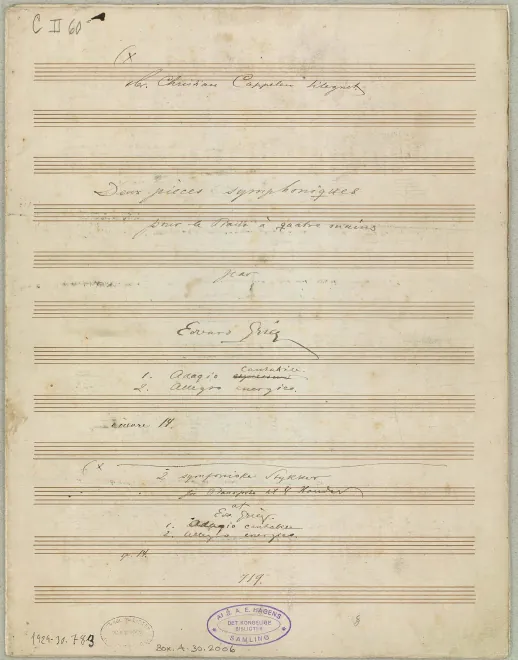 C II 60
(x
Hr. Christian Cappelen tilegnet
Deux pièces symphoniques
pour le Piano à quatre mains
par
Edvard Grieg
cantabile
1. Adagio
2. Allegro energico.
oeuvre 14.
(x
2 symfoniske Stykker
for Pianoforte til 4 Hænder
af
Edv. Grieg.
1. Adagio cantabile
2. Allegro energico.
op. 14.
719.
AF E. A. E. HAGENS
DET KONGELIGE
BIBLIOTEK
SAMLING
1929-30. 789
Box. A. 30. 2006